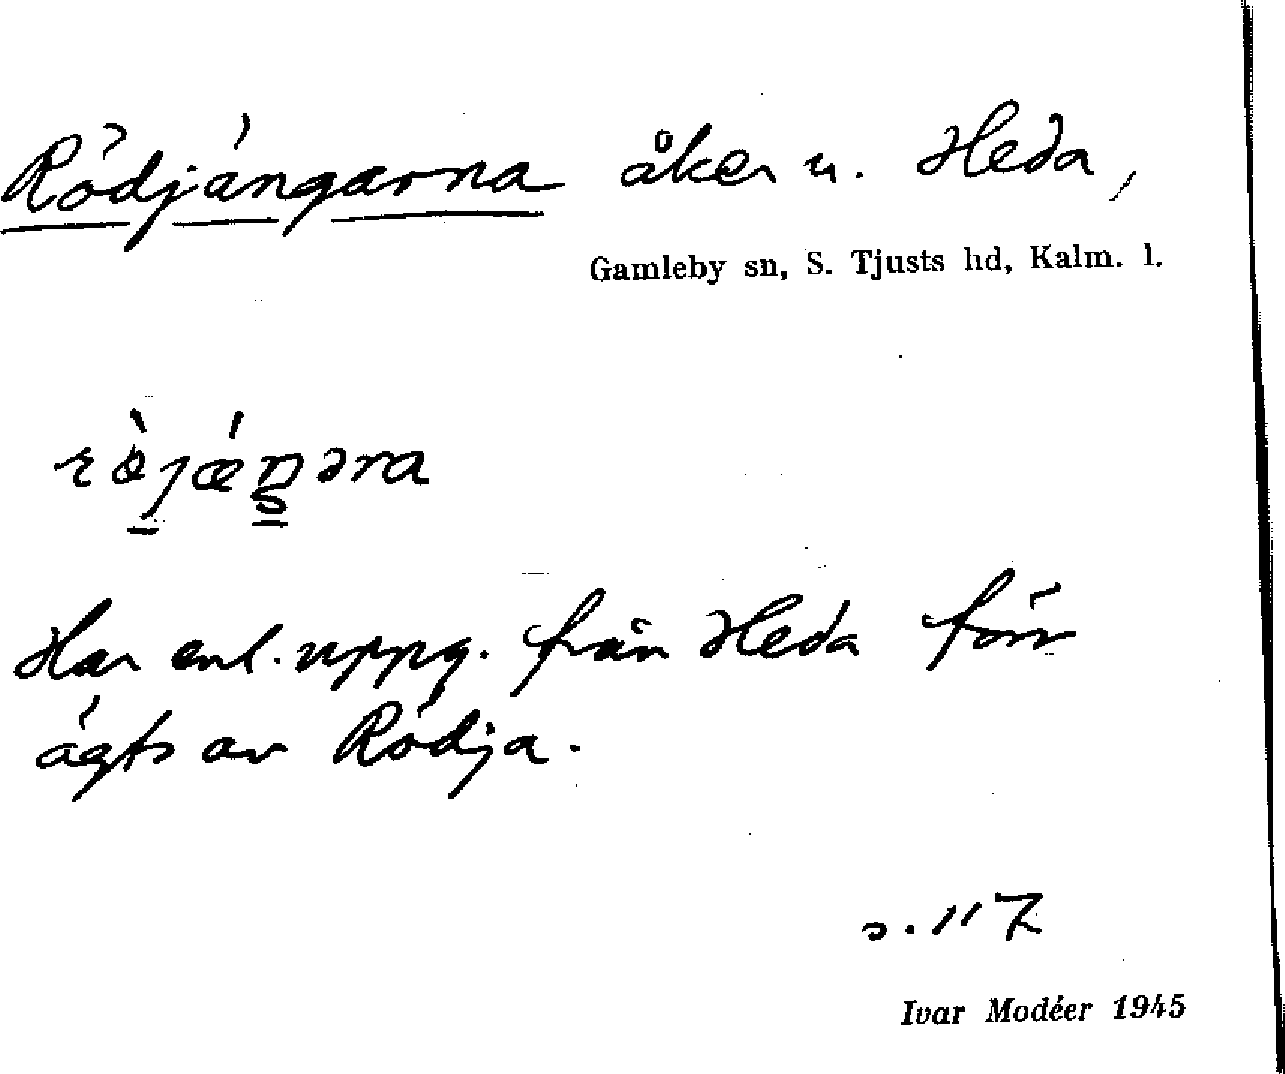 Rödjängarna åker u. Heda,
Gamleby sn, S. Tjusts hd, Kalm. l.
Har enl. uppg. från Heda förr
ägts av Rödja.
s. 117
Ivar Modéer 1945